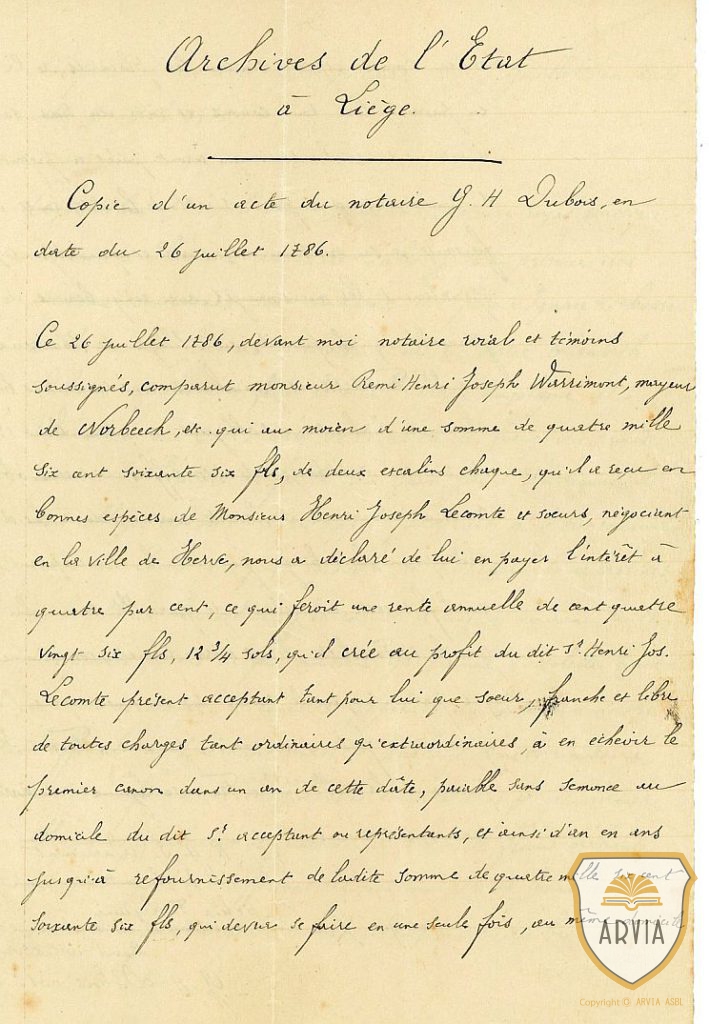 Archives de l'Etat
à Liège.
Copie d'un acte du notaire G. H Dubois, en
date du 26 juillet 1786.
Ce 26 juillet 1786, devant moi notaire roïal et témoins
soussignés, comparut monsieur Remi Henri Joseph Warrimont, mayeur
de Norbeech, etc. qui au moien d'une somme de quatre mille
six cent soixante six fls, de deux escalins chaque, qu'il a reçu en
bonnes espèces de Monsieur Henri Joseph Lecomte et soeurs, négociant
en la ville de Herve, nous a déclaré de lui en payer l'intérêt à
quatre par cent, ce qui feroit une rente annuelle de cent quatre
vingt six fls, 12 3/4 sols, qu'il crée au profit du dit Sr. Henri Jos.
Lecomte présent acceptant tant pour lui que soeur, franche et libre
de toutes charges tant ordinaires qu'extraordinaires, à en echevir le
premier canon dans un an de cette dâte, païable sans semonce au
domicile du dit Sr. acceptant ou représentants, et ainsi d'an en ans
jusqu'à refournissement de ladite somme de quatre mille six cent
soixante six fls, qui devra se faire en une seule fois, au même domicile
ARVIA
Copyright © ARVIA ASBL